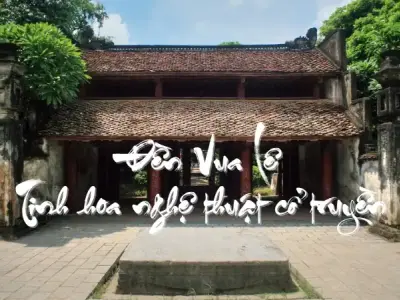 Đền Vua Lê
Tinh hoa nghệ thuật cổ truyền